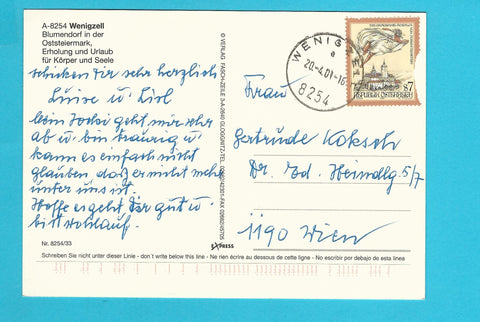 A-8254 Wenigzell
Blumendorf in der
Oststeiermark,
Erholung und Urlaub
für Körper und Seele
schicken Dir sehr herzlich
Luise u' Liesl
Josi geht mir sehr
ab u' bin traurig u'
kann es einfach nicht
glauben, daß er nicht mehr
unter uns ist.
Hoffe es geht Dir gut u'
bist wohlauf.
Nr. 8254/33
WENIGZELL
20.-4.01-16
8254
REPUBLIK ÖSTERREICH
S 7
Frau
Gertrude
Dr. Ed.
5/7
1190 Wien
EXPRESS
Schreiben Sie nicht unter dieser Linie - don't write below this line - Ne rien écrire au dessous de cette ligne - No escribir por debajo de esta línea